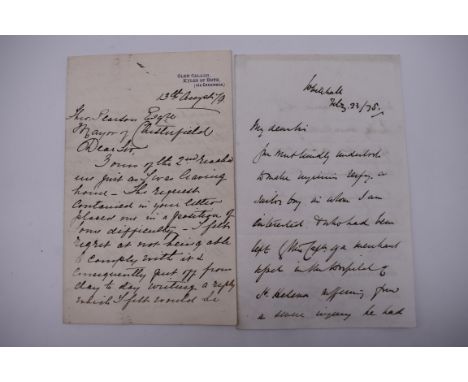 GLEN CALLUM
KYLES OF BUTE
(VIA GREENOCK)
13th August/79
Theo. Pearson Esqre
Mayor of Chesterfield
Dear Sir
Yours of the 2nd reached
me just as I was leaving
home - The request
contained in your letter
placed me in a position of
some difficulty - I felt
regret at not being able
to comply with it &
consequently put off from
day to day writing a reply
which I felt would be
Whitehall
My dear Sir
You most kindly undertook
to make inquiries respg. a
sailor boy in whom I am
interested & who had been
left by the Captn of a merchant
ship in the Hospital of
St Helena suffering from
a severe injury he had